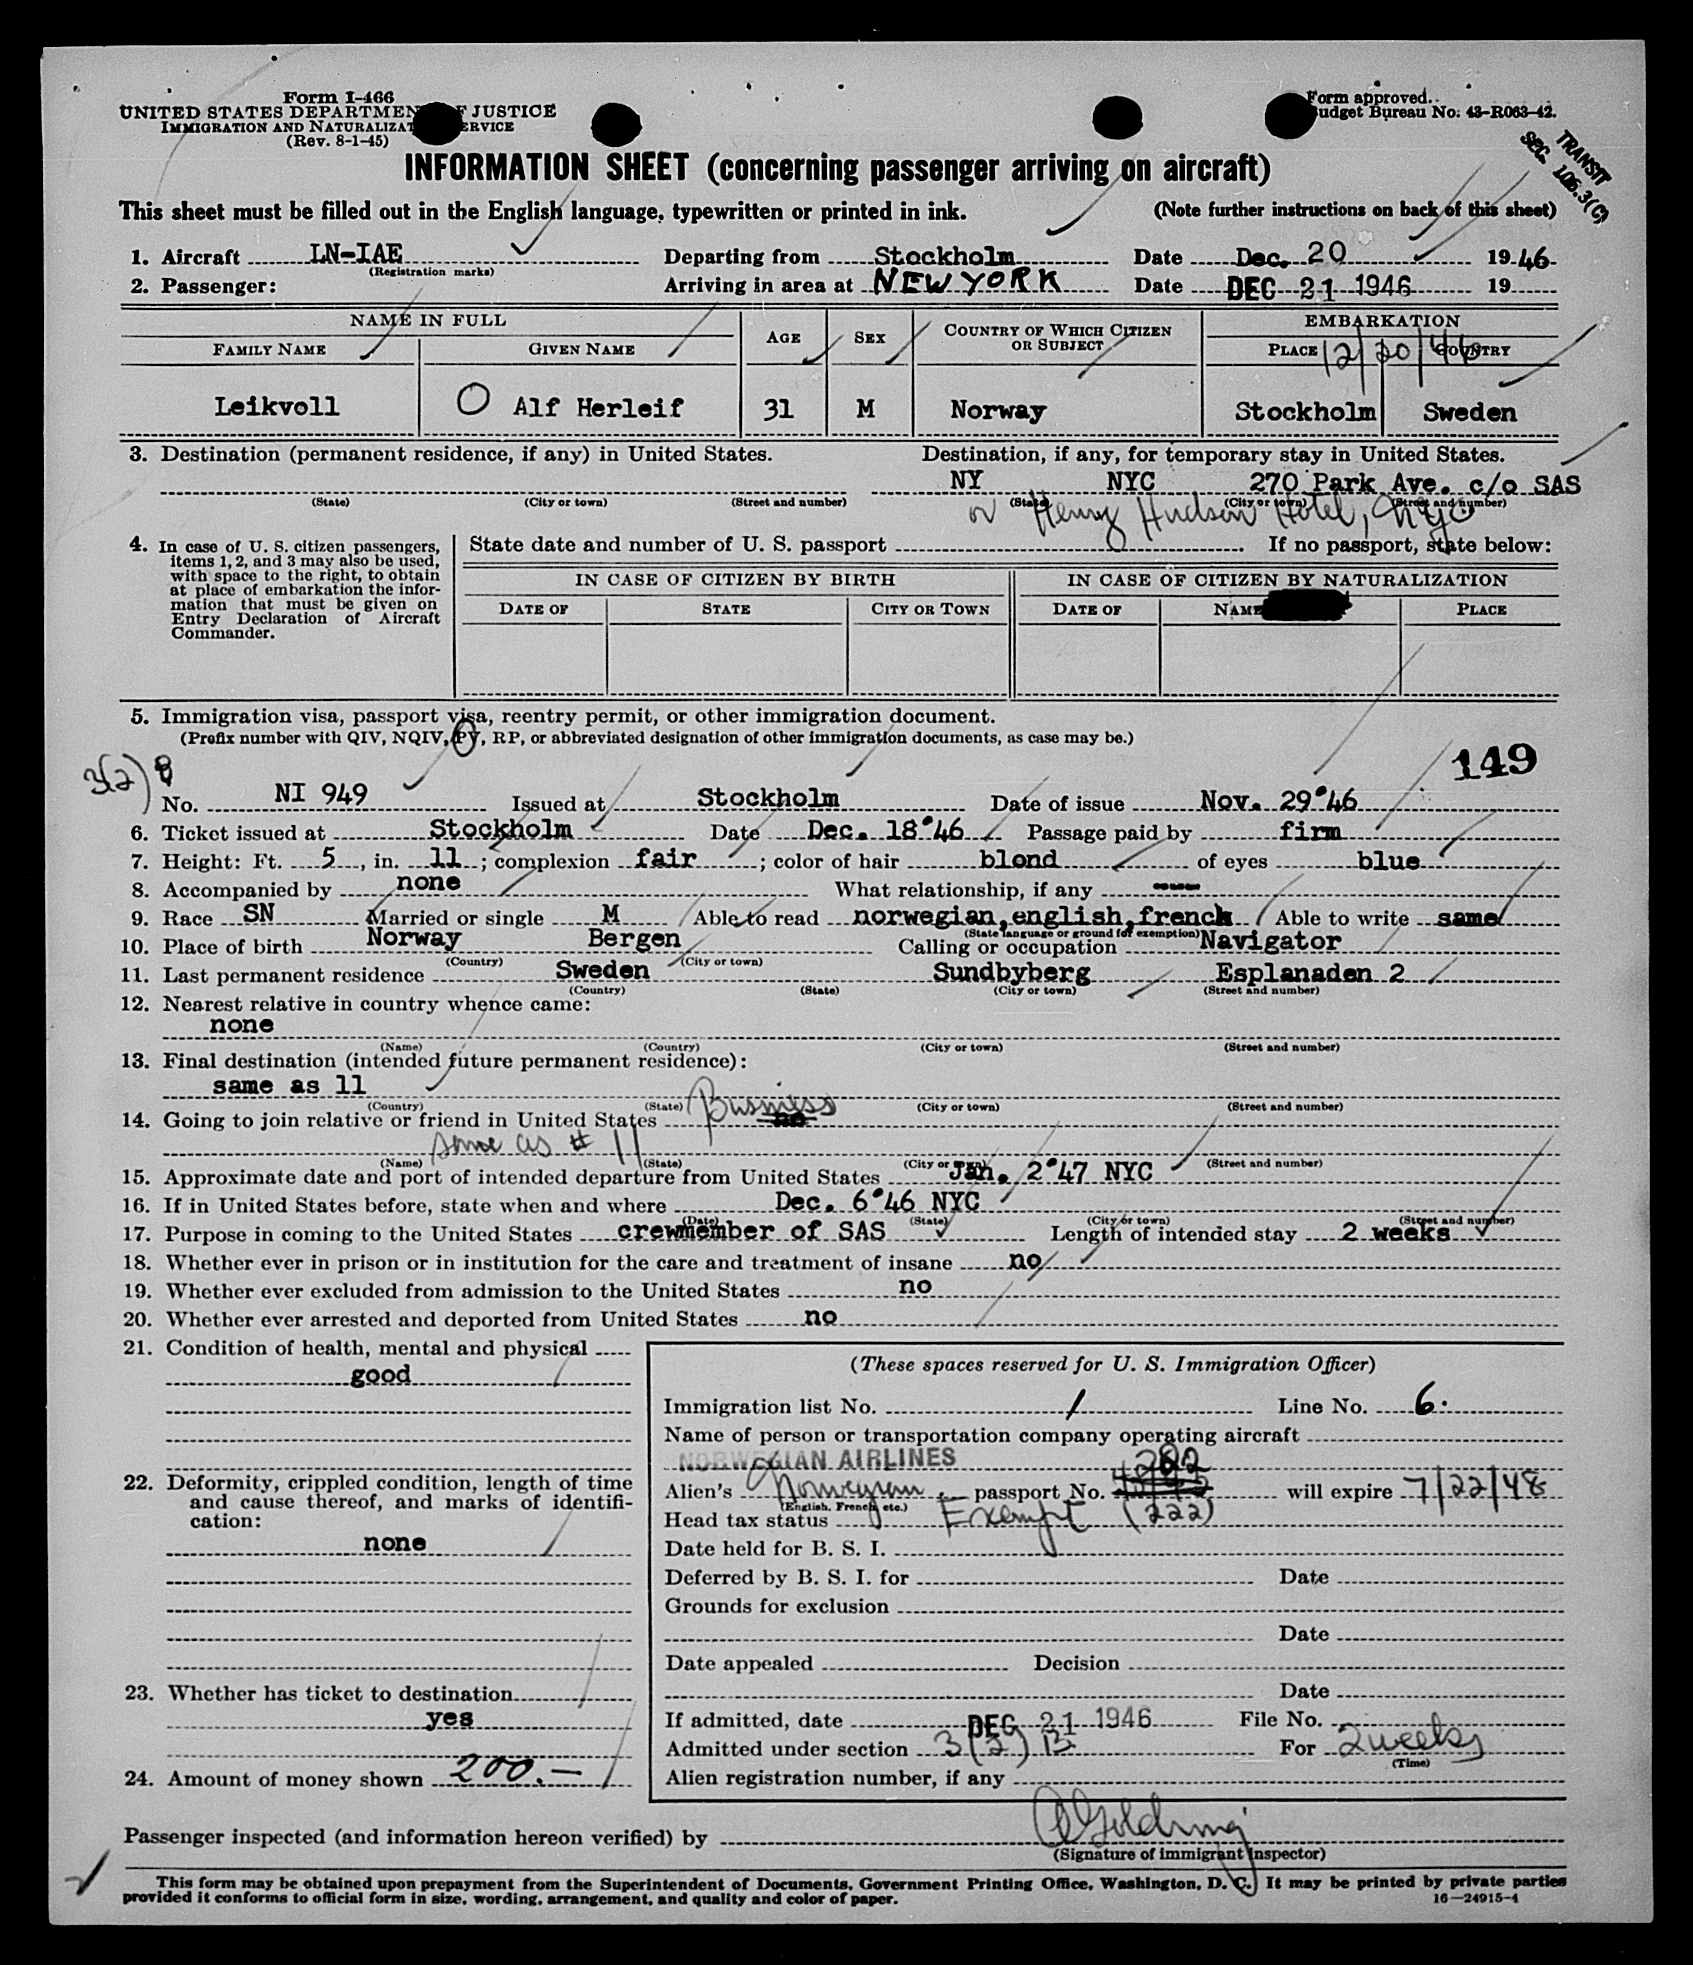 Form I-466
UNITED STATES DEPARTMENT OF JUSTICE
IMMIGRATION AND NATURALIZATION SERVICE
(Rev. 8-1-45)
Form approved.
Budget Bureau No. 43-R063-42.
TRANSIT
SEC. 106.3(C)
INFORMATION SHEET (concerning passenger arriving on aircraft)
This sheet must be filled out in the English language, typewritten or printed in ink. (Note further instructions on back of this sheet)
1. Aircraft LN-IAE Departing from Stockholm Date Dec. 20 1946
(Registration marks)
2. Passenger: Arriving in area at NEW YORK Date DEC 21 1946 19
NAME IN FULL AGE SEX COUNTRY OF WHICH CITIZEN OR SUBJECT EMBARKATION
FAMILY NAME GIVEN NAME PLACE 12/20/46 COUNTRY
Leikvoll O Alf Herleif 31 M Norway Stockholm Sweden
3. Destination (permanent residence, if any) in United States. Destination, if any, for temporary stay in United States.
NY NYC 270 Park Ave. c/o SAS
(State) (City or town) (Street and number) (State) (City or town) (Street and number)
or Henry Hudson Hotel, NYC
4. In case of U. S. citizen passengers, items 1, 2, and 3 may also be used, with space to the right, to obtain at place of embarkation the information that must be given on Entry Declaration of Aircraft Commander.
State date and number of U. S. passport If no passport, state below:
IN CASE OF CITIZEN BY BIRTH IN CASE OF CITIZEN BY NATURALIZATION
DATE OF STATE CITY OR TOWN DATE OF NAME PLACE
5. Immigration visa, passport visa, reentry permit, or other immigration document.
(Prefix number with QIV, NQIV, PV, RP, or abbreviated designation of other immigration documents, as case may be.)
149
3(2)
No. NI 949 Issued at Stockholm Date of issue Nov. 29'46
6. Ticket issued at Stockholm Date Dec. 18'46 Passage paid by firm
7. Height: Ft. 5, in. 11; complexion fair; color of hair blond of eyes blue
8. Accompanied by none What relationship, if any ----
9. Race SN Married or single M Able to read norwegian,english,french Able to write same
(State language or ground for exemption)
10. Place of birth Norway Bergen Calling or occupation Navigator
(Country) (City or town)
11. Last permanent residence Sweden Sundbyberg Esplanaden 2
(Country) (State) (City or town) (Street and number)
12. Nearest relative in country whence came:
none
(Name) (Country) (City or town) (Street and number)
13. Final destination (intended future permanent residence):
same as 11
(Country) (State) (City or town) (Street and number)
14. Going to join relative or friend in United States no Business
same as # 11
(Name) (State) (City or town) (Street and number)
15. Approximate date and port of intended departure from United States Jan. 2'47 NYC
16. If in United States before, state when and where Dec. 6'46 NYC
(Date) (State) (City or town) (Street and number)
17. Purpose in coming to the United States crewmember of SAS Length of intended stay 2 weeks
18. Whether ever in prison or in institution for the care and treatment of insane no
19. Whether ever excluded from admission to the United States no
20. Whether ever arrested and deported from United States no
21. Condition of health, mental and physical
good
22. Deformity, crippled condition, length of time and cause thereof, and marks of identification:
none
23. Whether has ticket to destination
yes
24. Amount of money shown 200.—
(These spaces reserved for U. S. Immigration Officer)
Immigration list No. 1 Line No. 6.
Name of person or transportation company operating aircraft
NORWEGIAN AIRLINES
282
Alien's Norwegian passport No. will expire 7/22/48
(English, French, etc.)
Head tax status Exempt (222)
Date held for B. S. I.
Deferred by B. S. I. for Date
Grounds for exclusion
Date
Date appealed Decision
Date
If admitted, date DEC 21 1946 File No.
Admitted under section 3(2) B For 2 weeks
(Time)
Alien registration number, if any
Passenger inspected (and information hereon verified) by
(Signature of immigrant inspector)
This form may be obtained upon prepayment from the Superintendent of Documents, Government Printing Office, Washington, D. C. It may be printed by private parties
provided it conforms to official form in size, wording, arrangement, and quality and color of paper.
16—24915-4